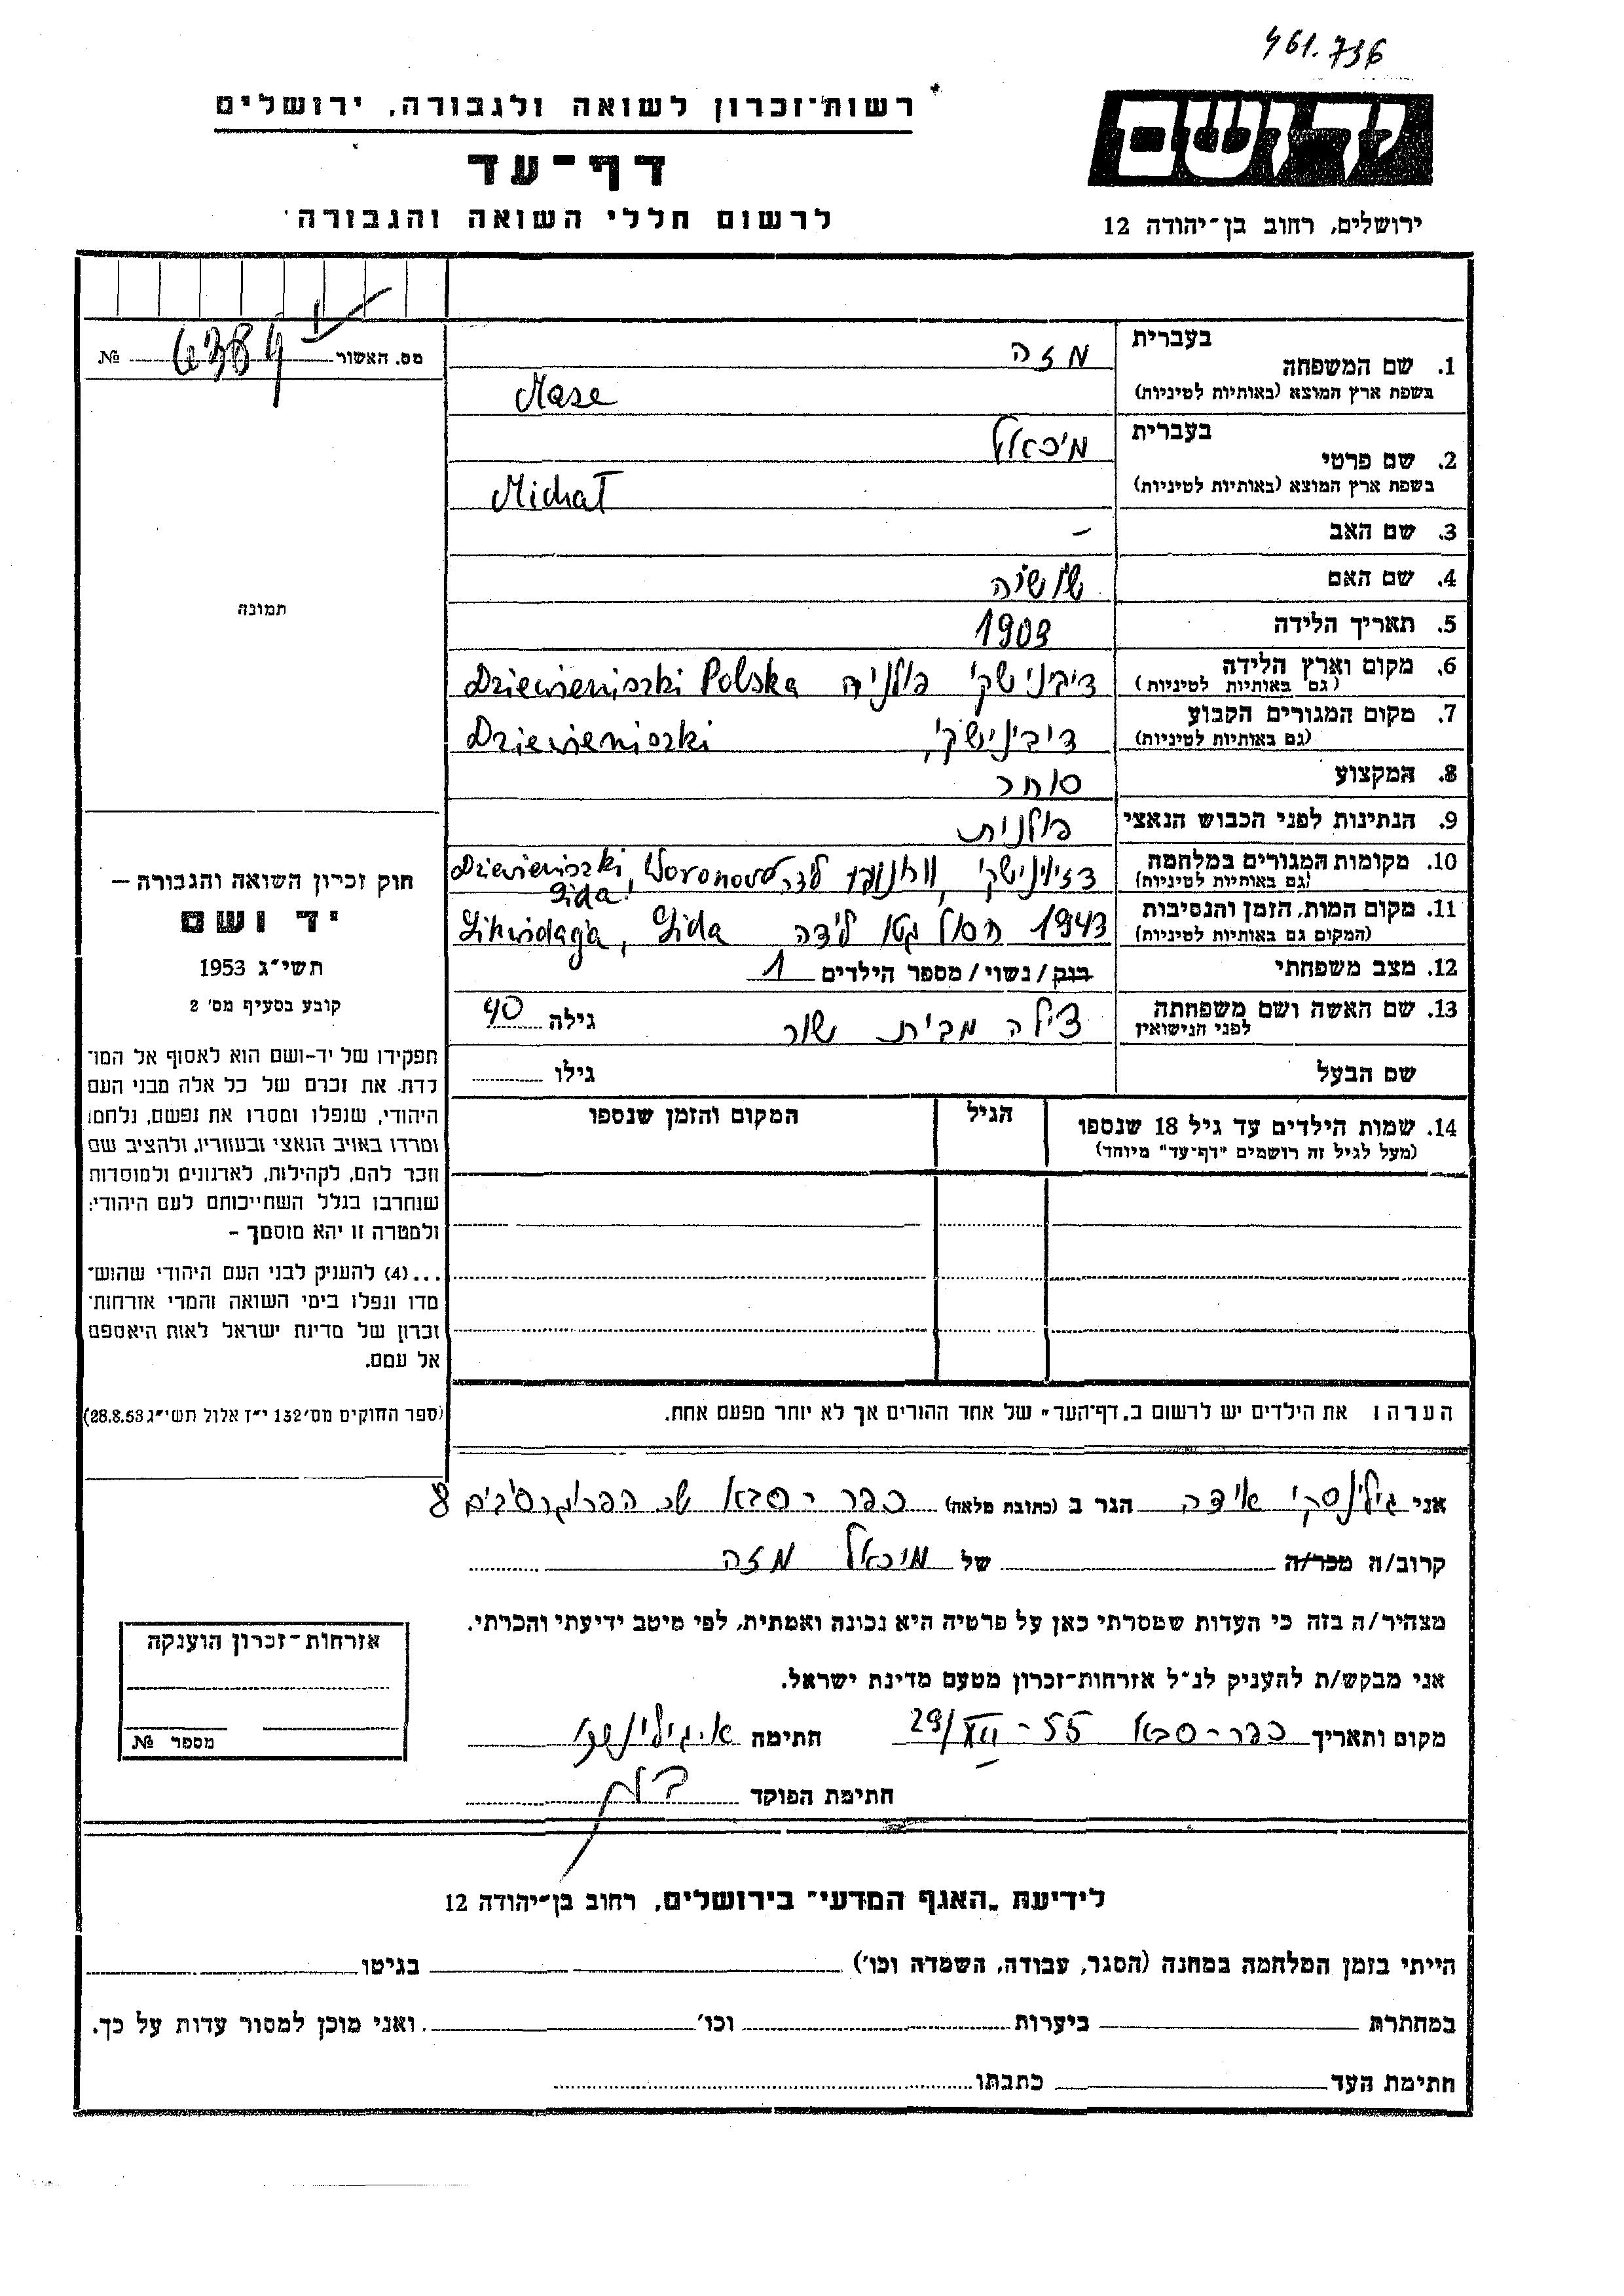 461.736
יד ושם
ירושלים, רחוב בן־יהודה 12
רשות־זכרון לשואה ולגבורה, ירושלים
דף־עד
לרשום חללי השואה והגבורה
מס. האשור 6384 №
תמונה
חוק זכרון השואה והגבורה —
יד ושם
תשי״ג 1953
קובע בסעיף מס׳ 2
תפקידו של יד-ושם הוא לאסוף אל המו־
לדת את זכרם של כל אלה מבני העם
היהודי, שנפלו ומסרו את נפשם, נלחמו
ומרדו באויב הנאצי ובעוזריו, ולהציב שם
וזכר להם, לקהילות, לארגונים ולמוסדות
שנחרבו בגלל השתייכותם לעם היהודי;
ולמטרה זו יהא מוסמך —
...(4) להעניק לבני העם היהודי שהוש־
מדו ונפלו בימי השואה והמרי אזרחות־
זכרון של מדינת ישראל לאות היאספם
אל עמם.
(ספר החוקים מס׳ 132 י״ז אלול תשי״ג 28.8.53)
1. שם המשפחה בעברית מזה
בשפת ארץ המוצא (באותיות לטיניות) Mase
2. שם פרטי בעברית מיכאל
בשפת ארץ המוצא (באותיות לטיניות) Michał
3. שם האב –
4. שם האם שושה
5. תאריך הלידה 1903
6. מקום וארץ הלידה (גם באותיות לטיניות) דיבנישקי פולניה Dziewieniszki Polska
7. מקום המגורים הקבוע (גם באותיות לטיניות) דיבינישקי Dziewieniszki
8. המקצוע סוחר
9. הנתינות לפני הכבוש הנאצי פולנית
10. מקומות המגורים במלחמה (גם באותיות לטיניות) Dziewieniszki, Woronowo, Lida
11. מקום המות, הזמן והנסיבות (המקום גם באותיות לטיניות) 1943 חסול גטו לידה Likwidacja, Lida
12. מצב משפחתי רווק/נשוי/מספר הילדים 1
13. שם האשה ושם משפחתה לפני הנישואין צילה מבית שור גילה 40
שם הבעל גילו
14. שמות הילדים עד גיל 18 שנספו הגיל המקום והזמן שנספו
(מעל לגיל זה רושמים "דף־עד" מיוחד)
הערה: את הילדים יש לרשום ב„דף־העד״ של אחד ההורים אך לא יותר מפעם אחת.
אני גילינסקי אידה הגר ב (כתובת מלאה) כפר-סבא שכ הפרוגרסיבים 8
קרוב/ה מכר/ה של מיכאל מזה
מצהיר/ה בזה כי העדות שמסרתי כאן על פרטיה היא נכונה ואמתית, לפי מיטב ידיעתי והכרתי.
אני מבקש/ת להעניק לנ״ל אזרחות־זכרון מטעם מדינת ישראל.
מקום ותאריך כפר-סבא 29/XII-55 חתימה א. גילינסקי
חתימת הפוקד
אזרחות־זכרון הוענקה
מספר №
לידיעת „האגף המדעי״ בירושלים, רחוב בן־יהודה 12
הייתי בזמן המלחמה במחנה (הסגר, עבודה, השמדה וכו׳) בגיטו
במחתרת ביערות וכו׳ ואני מוכן למסור עדות על כך.
חתימת העד כתבתו